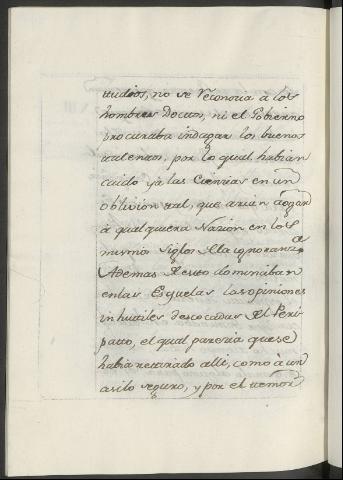 tudios, no se reconocia â los
hombres Doctos, ni el Gobierno
procuraba indagar los buenos
talentos, por lo qual habian
caido ya las Ciencias en un
oblivion tal, que
â qualquiera Nazion en los
mismos siglos ignorantes
Ademas de esto dominiban
en las Esquelas las opiniones
inhutiles descocadas del Peri
pato, el qual parezia que se
habia retiriado alli, como â un
asilo seguro, y por el temor